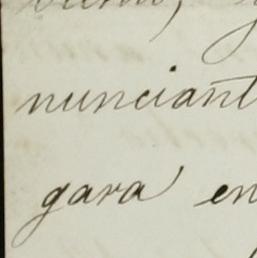 nunciant
gara en